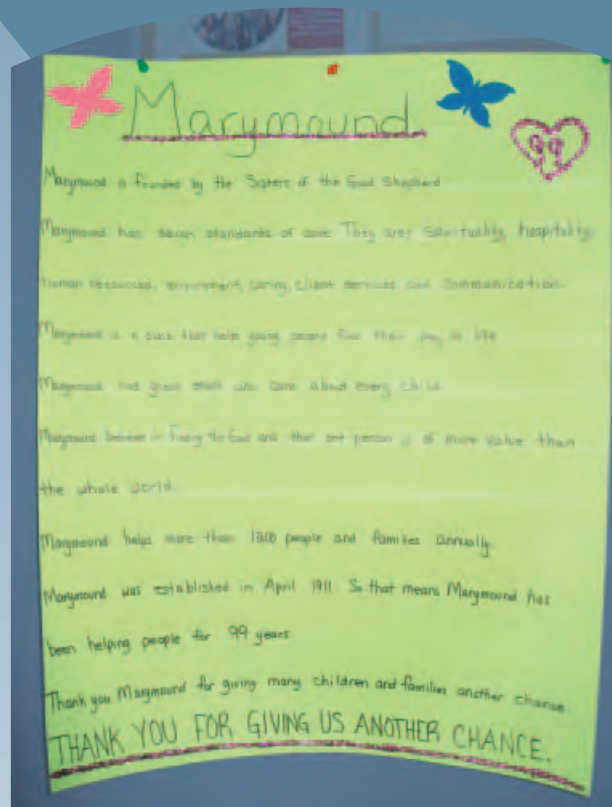 Marymound
99
Marymound is founded by the Sisters of the Good Shepherd
Marymound has seven standards of care They are; Spirituality, hospitality,
human resources, environment, caring, client services and Communication.
Marymound is a place that help young people find their way in life
Marymound has great staff who care about every child.
Marymound believes in Finding the Good and that one person is of more value than
the whole world.
Marymound helps more than 1200 people and families annually.
Marymound was established in April 1911. So that means Marymound has
been helping people for 99 years
Thank you Marymound for giving many children and families another chance.
THANK YOU FOR GIVING US ANOTHER CHANCE.